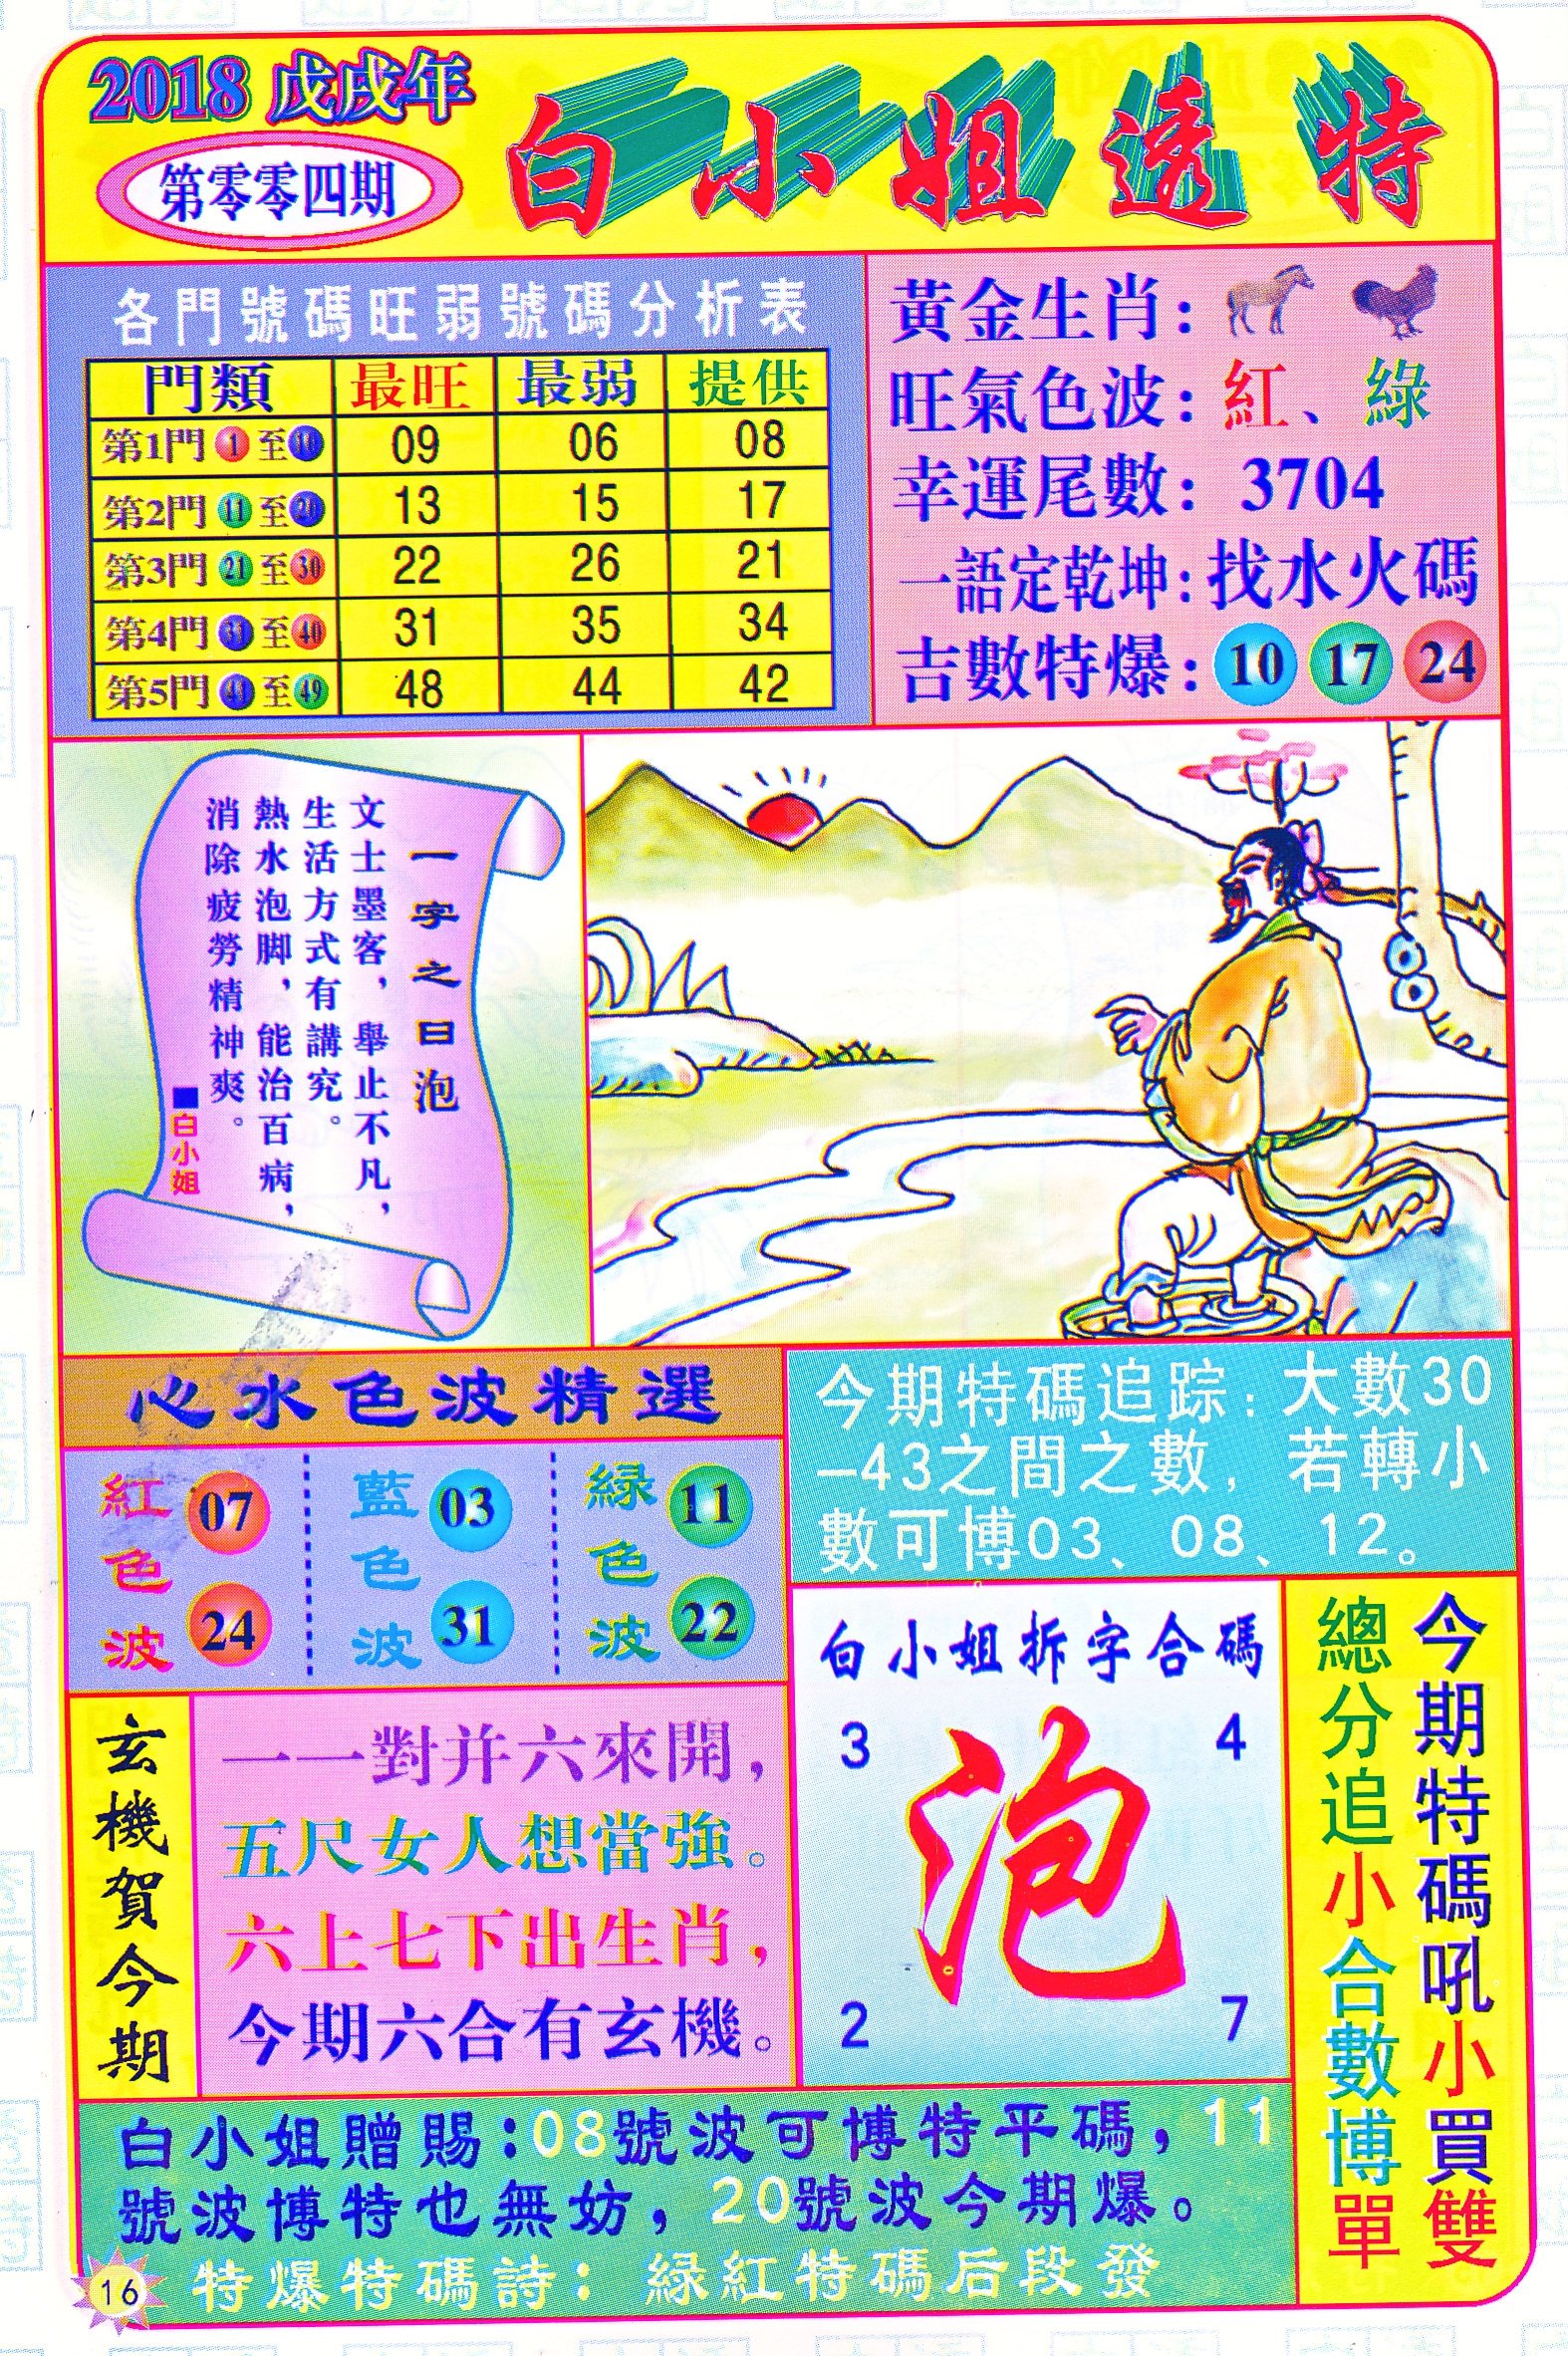 2018 戊戌年
第零零四期
白小姐透特
各門號碼旺弱號碼分析表
門類 最旺 最弱 提供
第1門 1 至 10 09 06 08
第2門 11 至 20 13 15 17
第3門 21 至 30 22 26 21
第4門 31 至 40 31 35 34
第5門 41 至 49 48 44 42
黃金生肖:
旺氣色波: 紅、綠
幸運尾數: 3704
一語定乾坤: 找水火碼
吉數特爆: 10 17 24
一字之曰泡
文士墨客,舉止不凡,
生活方式有講究。
熱水泡脚,能治百病,
消除疲勞精神爽。
■白小姐
心水色波精選
紅色波 07 24
藍色波 03 31
緑色波 11 22
今期特碼追踪: 大數30
-43之間之數, 若轉小
數可博03、08、12。
玄機賀今期
一一對并六來開,
五尺女人想當強。
六上七下出生肖,
今期六合有玄機。
白小姐拆字合碼
3 4
泡
2 7
今期特碼吼小買雙
總分追小合數博單
白小姐贈賜:08號波可博特平碼,11
號波博特也無妨,20號波今期爆。
特爆特碼詩: 緑紅特碼后段發
16